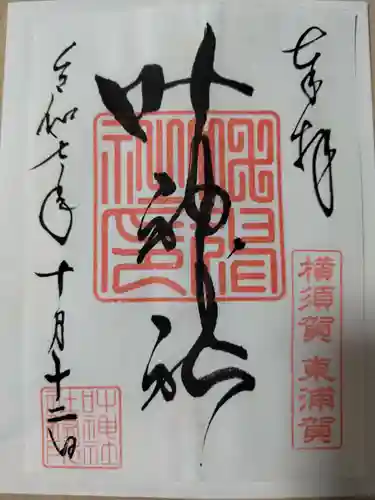 奉拝
横須賀 東浦賀
叶神社
令和七年十月十二日